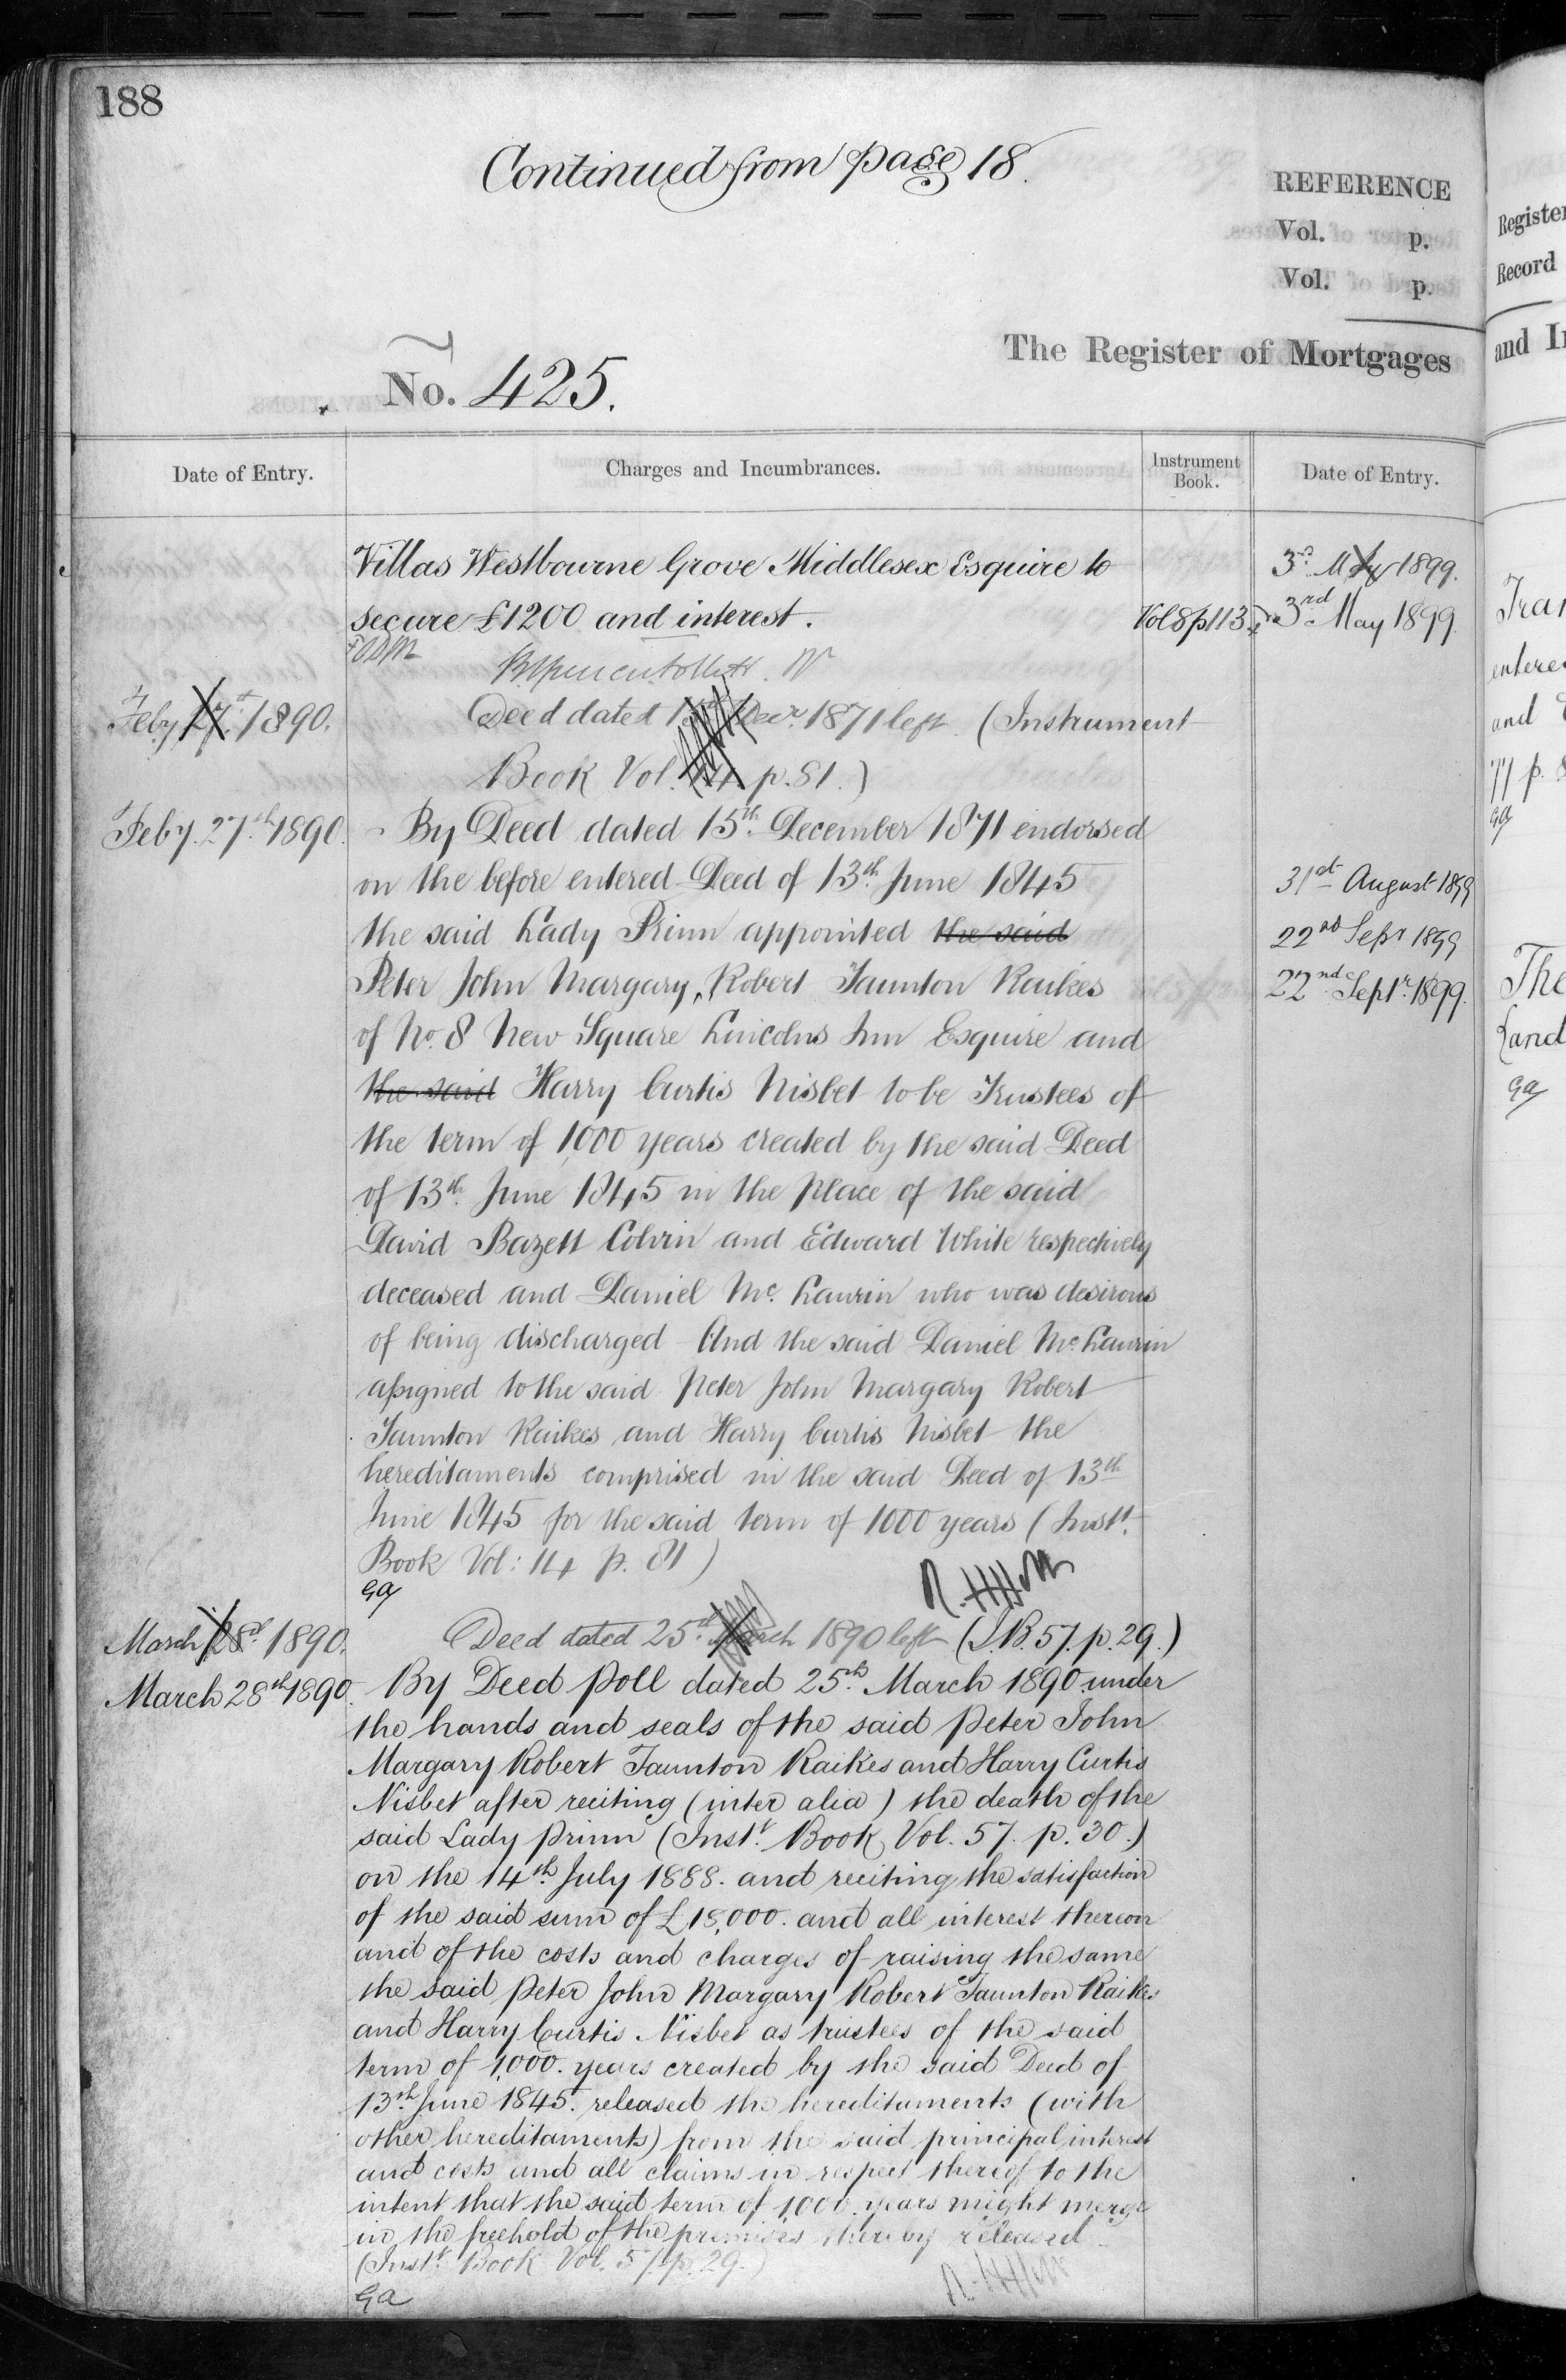 188
Continued from page 18.
REFERENCE
Vol. p.
Vol. p.
The Register of Mortgages
No. 425.
Date of Entry.
Charges and Incumbrances.
Instrument Book.
Date of Entry.
Villas Westbourne Grove Middlesex Esquire to
secure £1200 and interest. Vol 8 p 113
Feby 27th 1890. Deed dated 15th Decr. 1871 left (Instrument
Book Vol. 14 p. 81.)
Feby. 27th 1890. By Deed dated 15th December 1871 endorsed
on the before entered Deed of 13th June 1845
the said Lady Prinn appointed the said
Peter John Margary, Robert Taunton Raikes
of No. 8 New Square Lincolns Inn Esquire and
the said Harry Curtis Nisbet to be Trustees of
the term of 1000 years created by the said Deed
of 13th June 1845 in the place of the said
David Bazett Colvin and Edward White respectively
deceased and Daniel Mc. Laurin who was desirous
of being discharged And the said Daniel Mc. Laurin
assigned to the said Peter John Margary Robert
Taunton Raikes and Harry Curtis Nisbet the
hereditaments comprised in the said Deed of 13th
June 1845 for the said term of 1000 years (Instt.
Book Vol: 14 p. 81)
GA
March 28th 1890. Deed dated 25th March 1890 left (I.B. 57. p. 29.)
March 28th 1890. By Deed Poll dated 25th March 1890 under
the hands and seals of the said Peter John
Margary Robert Taunton Raikes and Harry Curtis
Nisbet after reciting (inter alia) the death of the
said Lady Prinn (Instt. Book Vol. 57. p. 30.)
on the 14th July 1888. and reciting the satisfaction
of the said sum of £18,000. and all interest thereon
and of the costs and charges of raising the same
the said Peter John Margary Robert Taunton Raikes
and Harry Curtis Nisbet as trustees of the said
term of 1,000. years created by the said Deed of
13th June 1845. released the hereditaments (with
other hereditaments) from the said principal, interest
and costs and all claims in respect thereof to the
intent that the said term of 1,000. years might merge
in the freehold of the premises thereby released
(Instt. Book Vol. 57. p. 29.)
GA
3rd May 1899.
3rd May 1899
31st August 1899
22nd Sepr 1899
22nd Septr. 1899.
Register
Record
and
Tran
and
77 p.
GA
The
and
GA